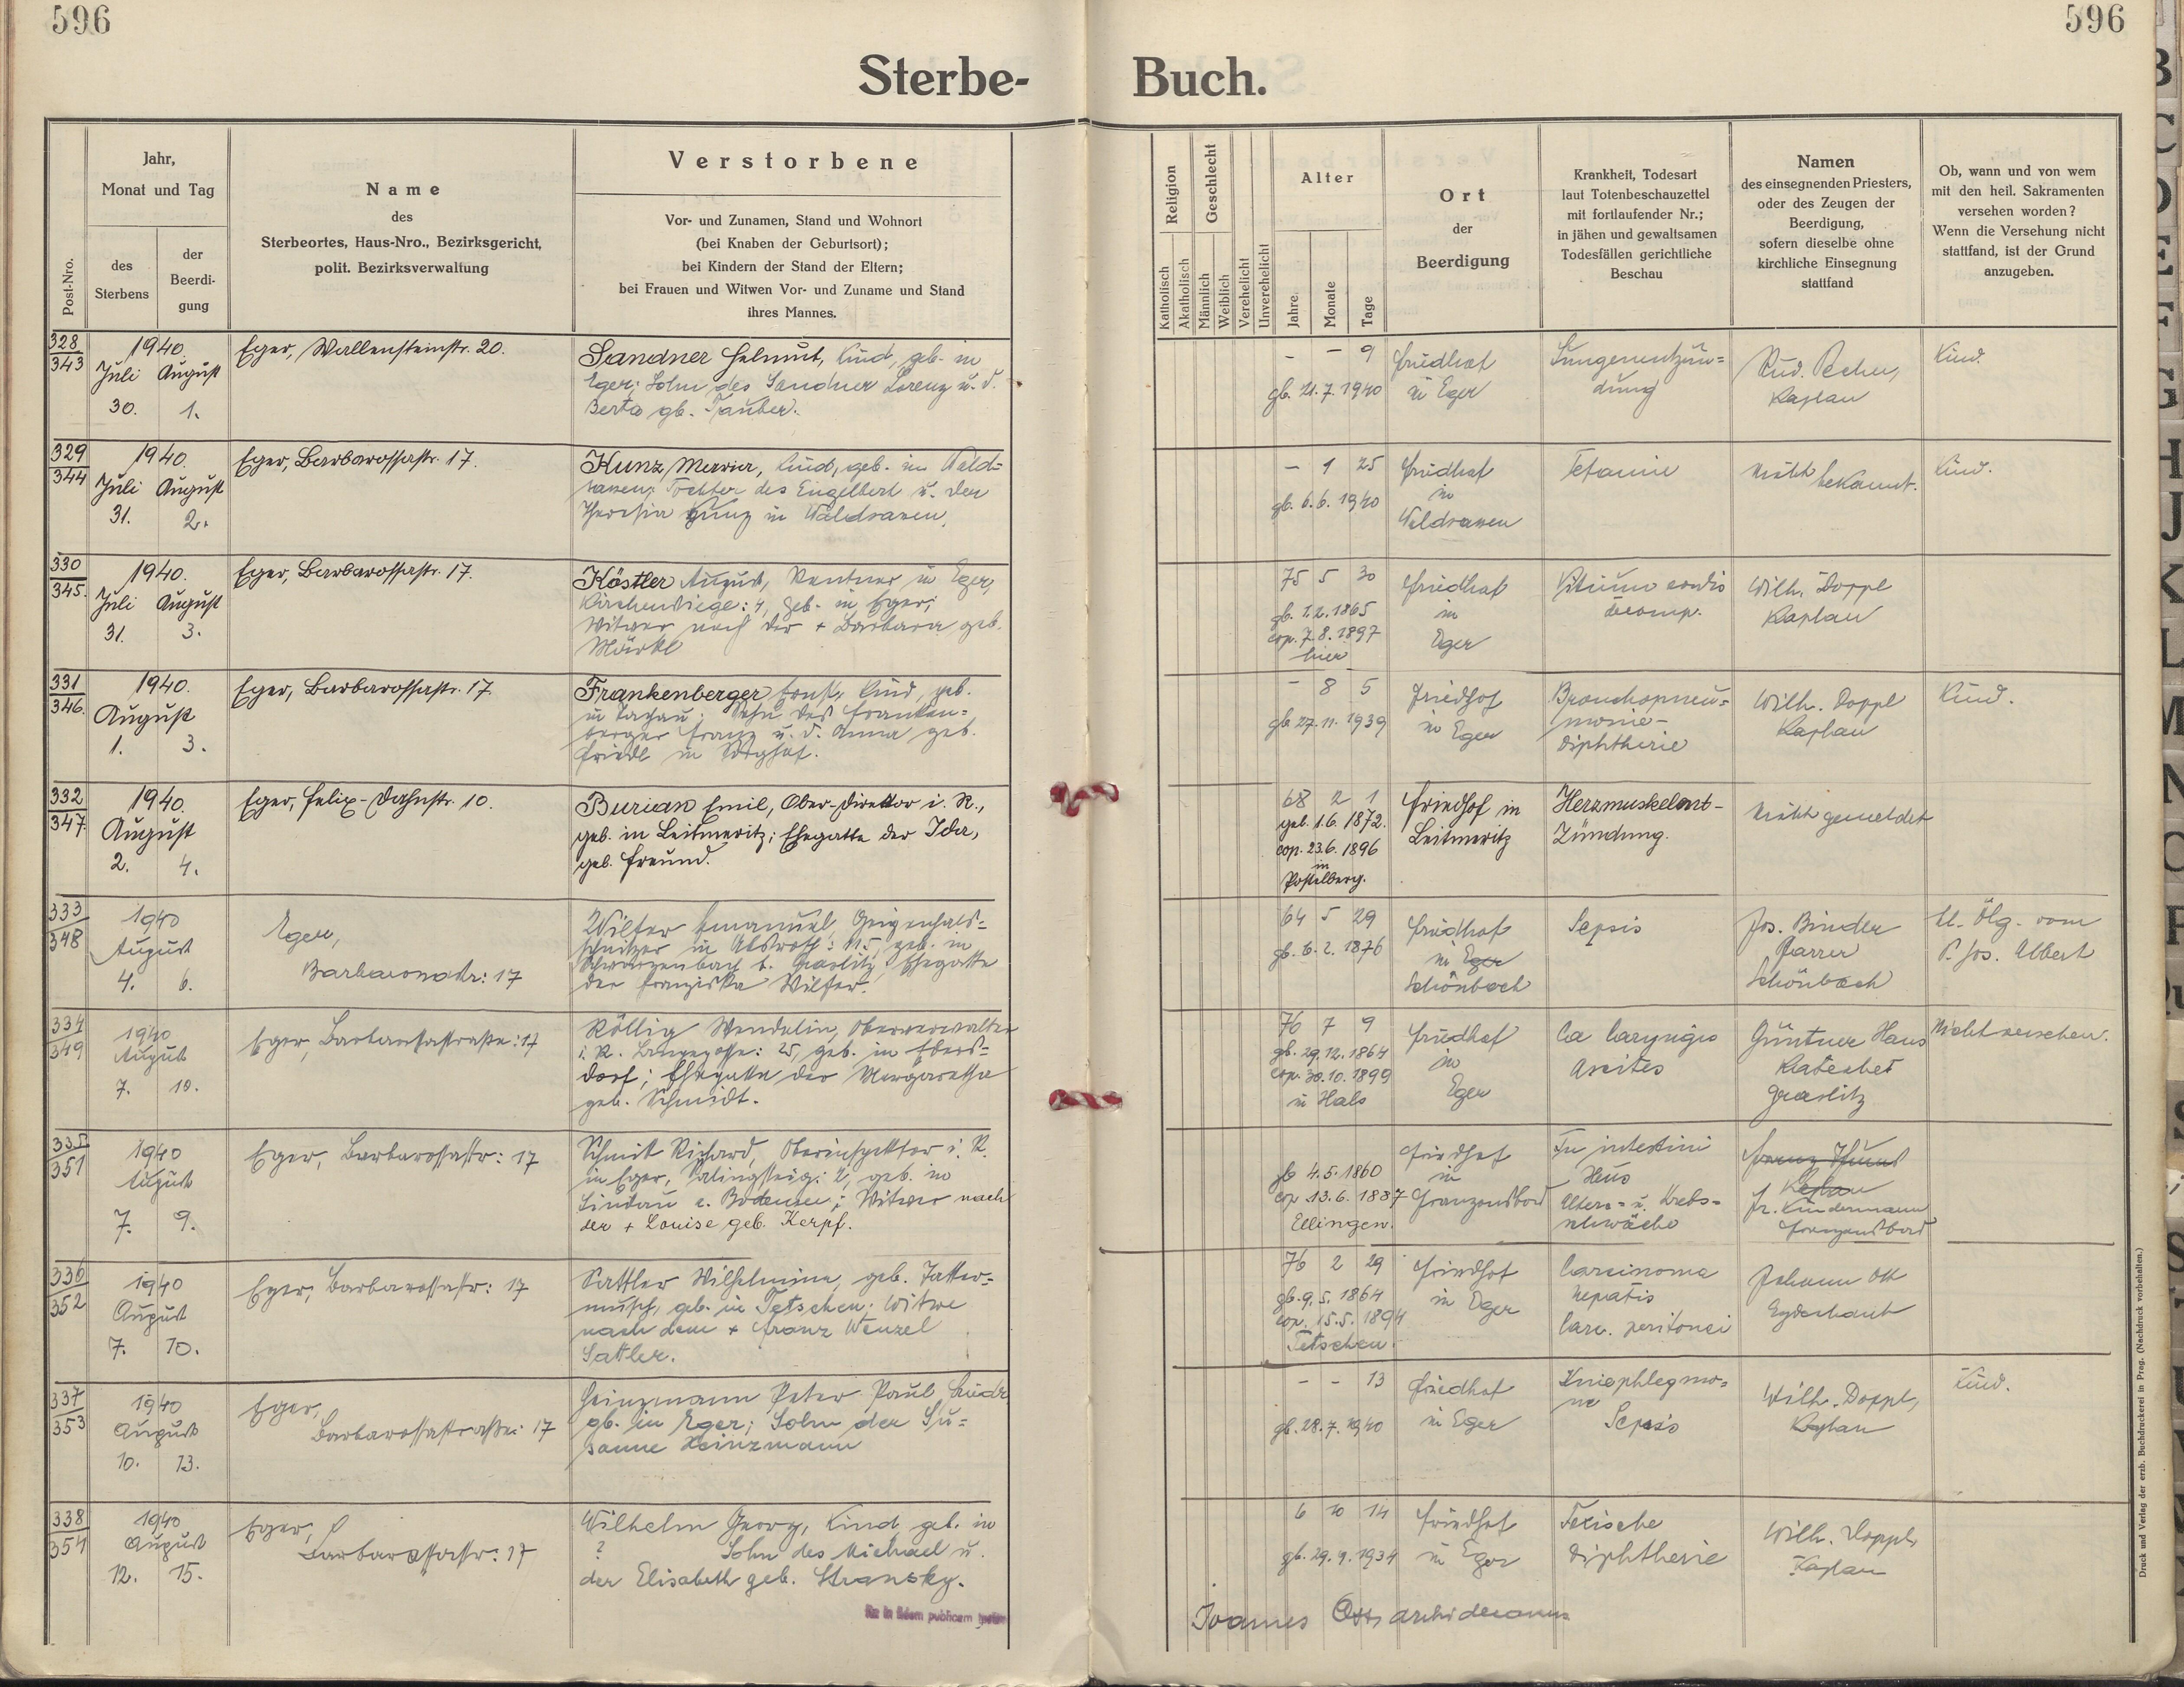 596
596
Sterbe- Buch.
Post-Nro.
Jahr,
Monat und Tag
des
Sterbens
der
Beerdi-
gung
Name
des
Sterbeortes, Haus-Nro., Bezirksgericht,
polit. Bezirksverwaltung
Verstorbene
Vor- und Zunamen, Stand und Wohnort
(bei Knaben der Geburtsort);
bei Kindern der Stand der Eltern;
bei Frauen und Witwen Vor- und Zuname und Stand
ihres Mannes.
Religion
Katholisch
Akatholisch
Geschlecht
Männlich
Weiblich
Verehelicht
Unverehelicht
Alter
Jahre
Monate
Tage
Ort
der
Beerdigung
Krankheit, Todesart
laut Totenbeschauzettel
mit fortlaufender Nr.;
in jähen und gewaltsamen
Todesfällen gerichtliche
Beschau
Namen
des einsegnenden Priesters,
oder des Zeugen der
Beerdigung,
sofern dieselbe ohne
kirchliche Einsegnung
stattfand
Ob, wann und von wem
mit den heil. Sakramenten
versehen worden?
Wenn die Versehung nicht
stattfand, ist der Grund
anzugeben.
328
343
1940
Juli August
30. 1.
Eger, Wallensteinstr. 20.
Sandner Helmut, Kind, geb. in
Eger; Sohn des Sandner Lorenz u. d.
Berta gb. Tauber.
- - 9
gb. 21.7.1940
Friedhof
in Eger
Lungenentzün=
dung
Rud. Pecher,
Kaplan
Kind.
329
344
1940.
Juli August
31. 2.
Eger, Barbarossastr. 17.
Kunz Maria, Kind, geb. in Wald=
sassen; Tochter des Engelbert u. der
Theresia Kunz in Waldsassen.
- 1 25
gb. 6.6.1940
Friedhof
in
Waldsassen
Tetanie
nicht bekannt.
Kind.
330
345.
1940.
Juli August
31. 3.
Eger, Barbarossastr. 17.
Köstler August, Rentner in Eger,
geb. in Eger;
Witwer nach der + Barbara geb.
Märkl
75 5 30
gb. 1.2.1865
cop. 7.8.1897
hier
Friedhof
in
Eger
Vitium cordis
decomp.
Wilh. Doppl
Kaplan
331
346.
1940.
August
1. 3.
Eger, Barbarossastr. 17.
Frankenberger Ernst, Kind, geb.
in Tachau; Sohn des Franken=
berger Franz u. d. Anna geb.
Friedl in
- 8 5
gb. 27.11.1939
Friedhof
in Eger
Bronchopneu=
monie-
Diphtherie
Wilh. Doppl
Kaplan
Kind.
332
347
1940
August
2. 4.
Eger, Felix-Dahnstr. 10.
Burian Emil, Ober-Direktor i. R.,
geb. in Leitmeritz; Ehegatte der Ida,
geb. Freund.
68 2 1
geb. 1.6.1872.
cop. 23.6.1896
in
Postelberg.
Friedhof in
Leitmeritz
Herzmuskelent-
Zündung.
nicht gemeldet
333
348
1940
August
4. 6.
Eger,
Barbarossastr: 17
Wilfer Emanuel, Geigenhals=
schnitzer in Absroth: 115, geb. in
Schwarzenbach b. Graslitz, Ehegatte
der Franziska Wilfer.
64 5 29
gb. 6.2.1876
Friedhof
in Eger
Schönbach
Sepsis
Jos. Binder
Pfarrer
Schönbach
Ölg. vom
P. Jos. Albert
334
349
1940
August
7. 10.
Eger, Barbarossastraße: 17
Köllig Wendelin, Oberverwalter
i. R. Langegasse: 25, geb. in Ebers=
dorf; Ehegatte der Margaretha
geb. Schmidt.
76 7 9
gb. 29.12.1864
cop. 30.10.1899
in Hals
Friedhof
in
Eger
Ca laryngis
Ascites
Güntner Hans
Katechet
Graslitz
Nicht versehen.
335
351
1940
August
7. 9.
Eger, Barbarossastr: 17
Schmit Richard, Oberinspektor i. R.
in Eger, geb. in
Lindau a. Bodensee; Witwer nach
der + Louise geb. Kerpf.
gb 4.5.1860
cop 13.6.1887
Ellingen.
Friedhof
in
Franzensbad
Tu intestini
Ileus
Alters- u. Krebs=
schwäche
Kaplan
Fr. Kindermann
Franzensbad
336
352
1940
August
7. 10.
Eger, Barbarossastr: 17
Sattler Wilhelmine, geb.
geb. in Tetschen; Witwe
nach dem + Franz Wenzel
Sattler.
76 2 29
gb. 9.5.1864
cop. 15.5.1894
Tetschen.
Friedhof
in Eger
Carcinoma
hepatis
Carc. peritonei
Johann Ott
Erzdechant
337
353
1940
August
10. 13.
Eger,
Barbarossastraße: 17
Heinzmann Peter Paul Kind,
gb. in Eger; Sohn der Su=
sanne Heinzmann
- - 13
gb. 28.7.1940
Friedhof
in Eger
Kniephlegmo=
ne
Sepsis
Wilh. Doppl,
Kaplan
Kind.
338
354
1940
August
12. 15.
Eger,
Barbarossastr: 17
Wilhelm Georg, Kind, geb. in
? Sohn des Michael u.
der Elisabeth geb. Stransky.
6 10 14
gb. 29.9.1934
Friedhof
in Eger
Toxische
Diphtherie
Wilh. Doppl,
Kaplan
in fidem publicam
Joannes Ott, archidecanus
Druck und Verlag der erzb. Buchdruckerei in Prag. (Nachdruck vorbehalten.)